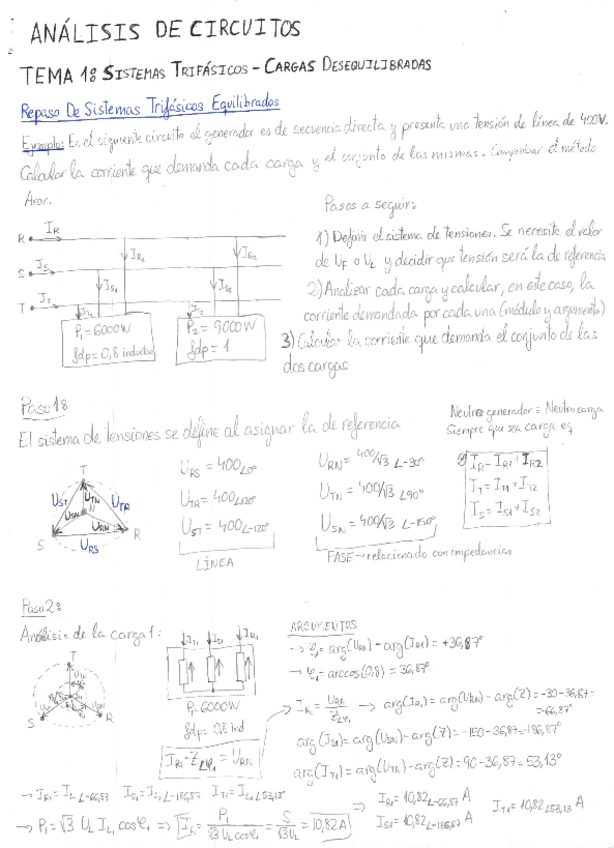 ANÁLISIS DE CIRCUITOS
TEMA 1: SISTEMAS TRIFÁSICOS - CARGAS DESEQUILIBRADAS
Repaso De Sistemas Trifásicos Equilibrados
Ejemplo: En el siguiente circuito el generador es de secuencia directa y presenta una tensión de línea de 400V.
Calcular la corriente que demanda cada carga y el conjunto de las mismas. Comprobar el método
Aron.
Pasos a seguir:
1) Definir el sistema de tensiones. Se necesita el valor
de UF o UL y decidir que tensión será la de referencia
2) Analizar cada carga y calcular, en este caso, la
corriente demandada por cada una (módulo y argumento)
3) Calcular la corriente que demanda el conjunto de las
dos cargas
R IR IR1 IR2
S IS IS1 IS2
T IT IT1 IT2
P1 = 6000W
fdp = 0,8 inductivo
P2 = 9000W
fdp = 1
Paso 1:
El sistema de tensiones se define al asignar la de referencia
Neutro generador ≡ Neutro carga
Siempre que sea carga eq
T
UST UTN UTR
USN N URN
S R
URS
URS = 400∠0°
UTR = 400∠120°
UST = 400∠-120°
LÍNEA
URN = 400/√3 ∠-30°
UTN = 400/√3 ∠90°
USN = 400/√3 ∠-150°
FASE → relacionado con impedancias
IR = IR1 + IR2
IT = IT1 + IT2
IS = IS1 + IS2
Paso 2:
Análisis de la carga 1:
T
S R
IT1 IS1 IR1
P1 = 6000W
fdp = 0,8 ind
IR1 · Z∠φ1 = URN
ARGUMENTOS
→ φ1 = arg(URN) - arg(IR1) = +36,87°
→ φ1 = arccos(0,8) = 36,87°
→ IR1 = URN / Z∠φ1 → arg(IR1) = arg(URN) - arg(Z) = -30 - 36,87 =
= -66,87°
arg(IS1) = arg(USN) - arg(Z) = -150 - 36,87 = -186,87°
arg(IT1) = arg(UTN) - arg(Z) = 90 - 36,87 = 53,13°
→ IR1 = IL1∠-66,87 IS1 = IL1∠-186,87 IT1 = IL1∠53,13°
→ P1 = √3 UL IL1 cosφ1 ⇒ IL1 = P1 / √3 UL cosφ1 = S / √3 UL = 10,82 A
⇒ IR1 = 10,82∠-66,87 A
IS1 = 10,82∠-186,87 A
IT1 = 10,82∠53,13 A